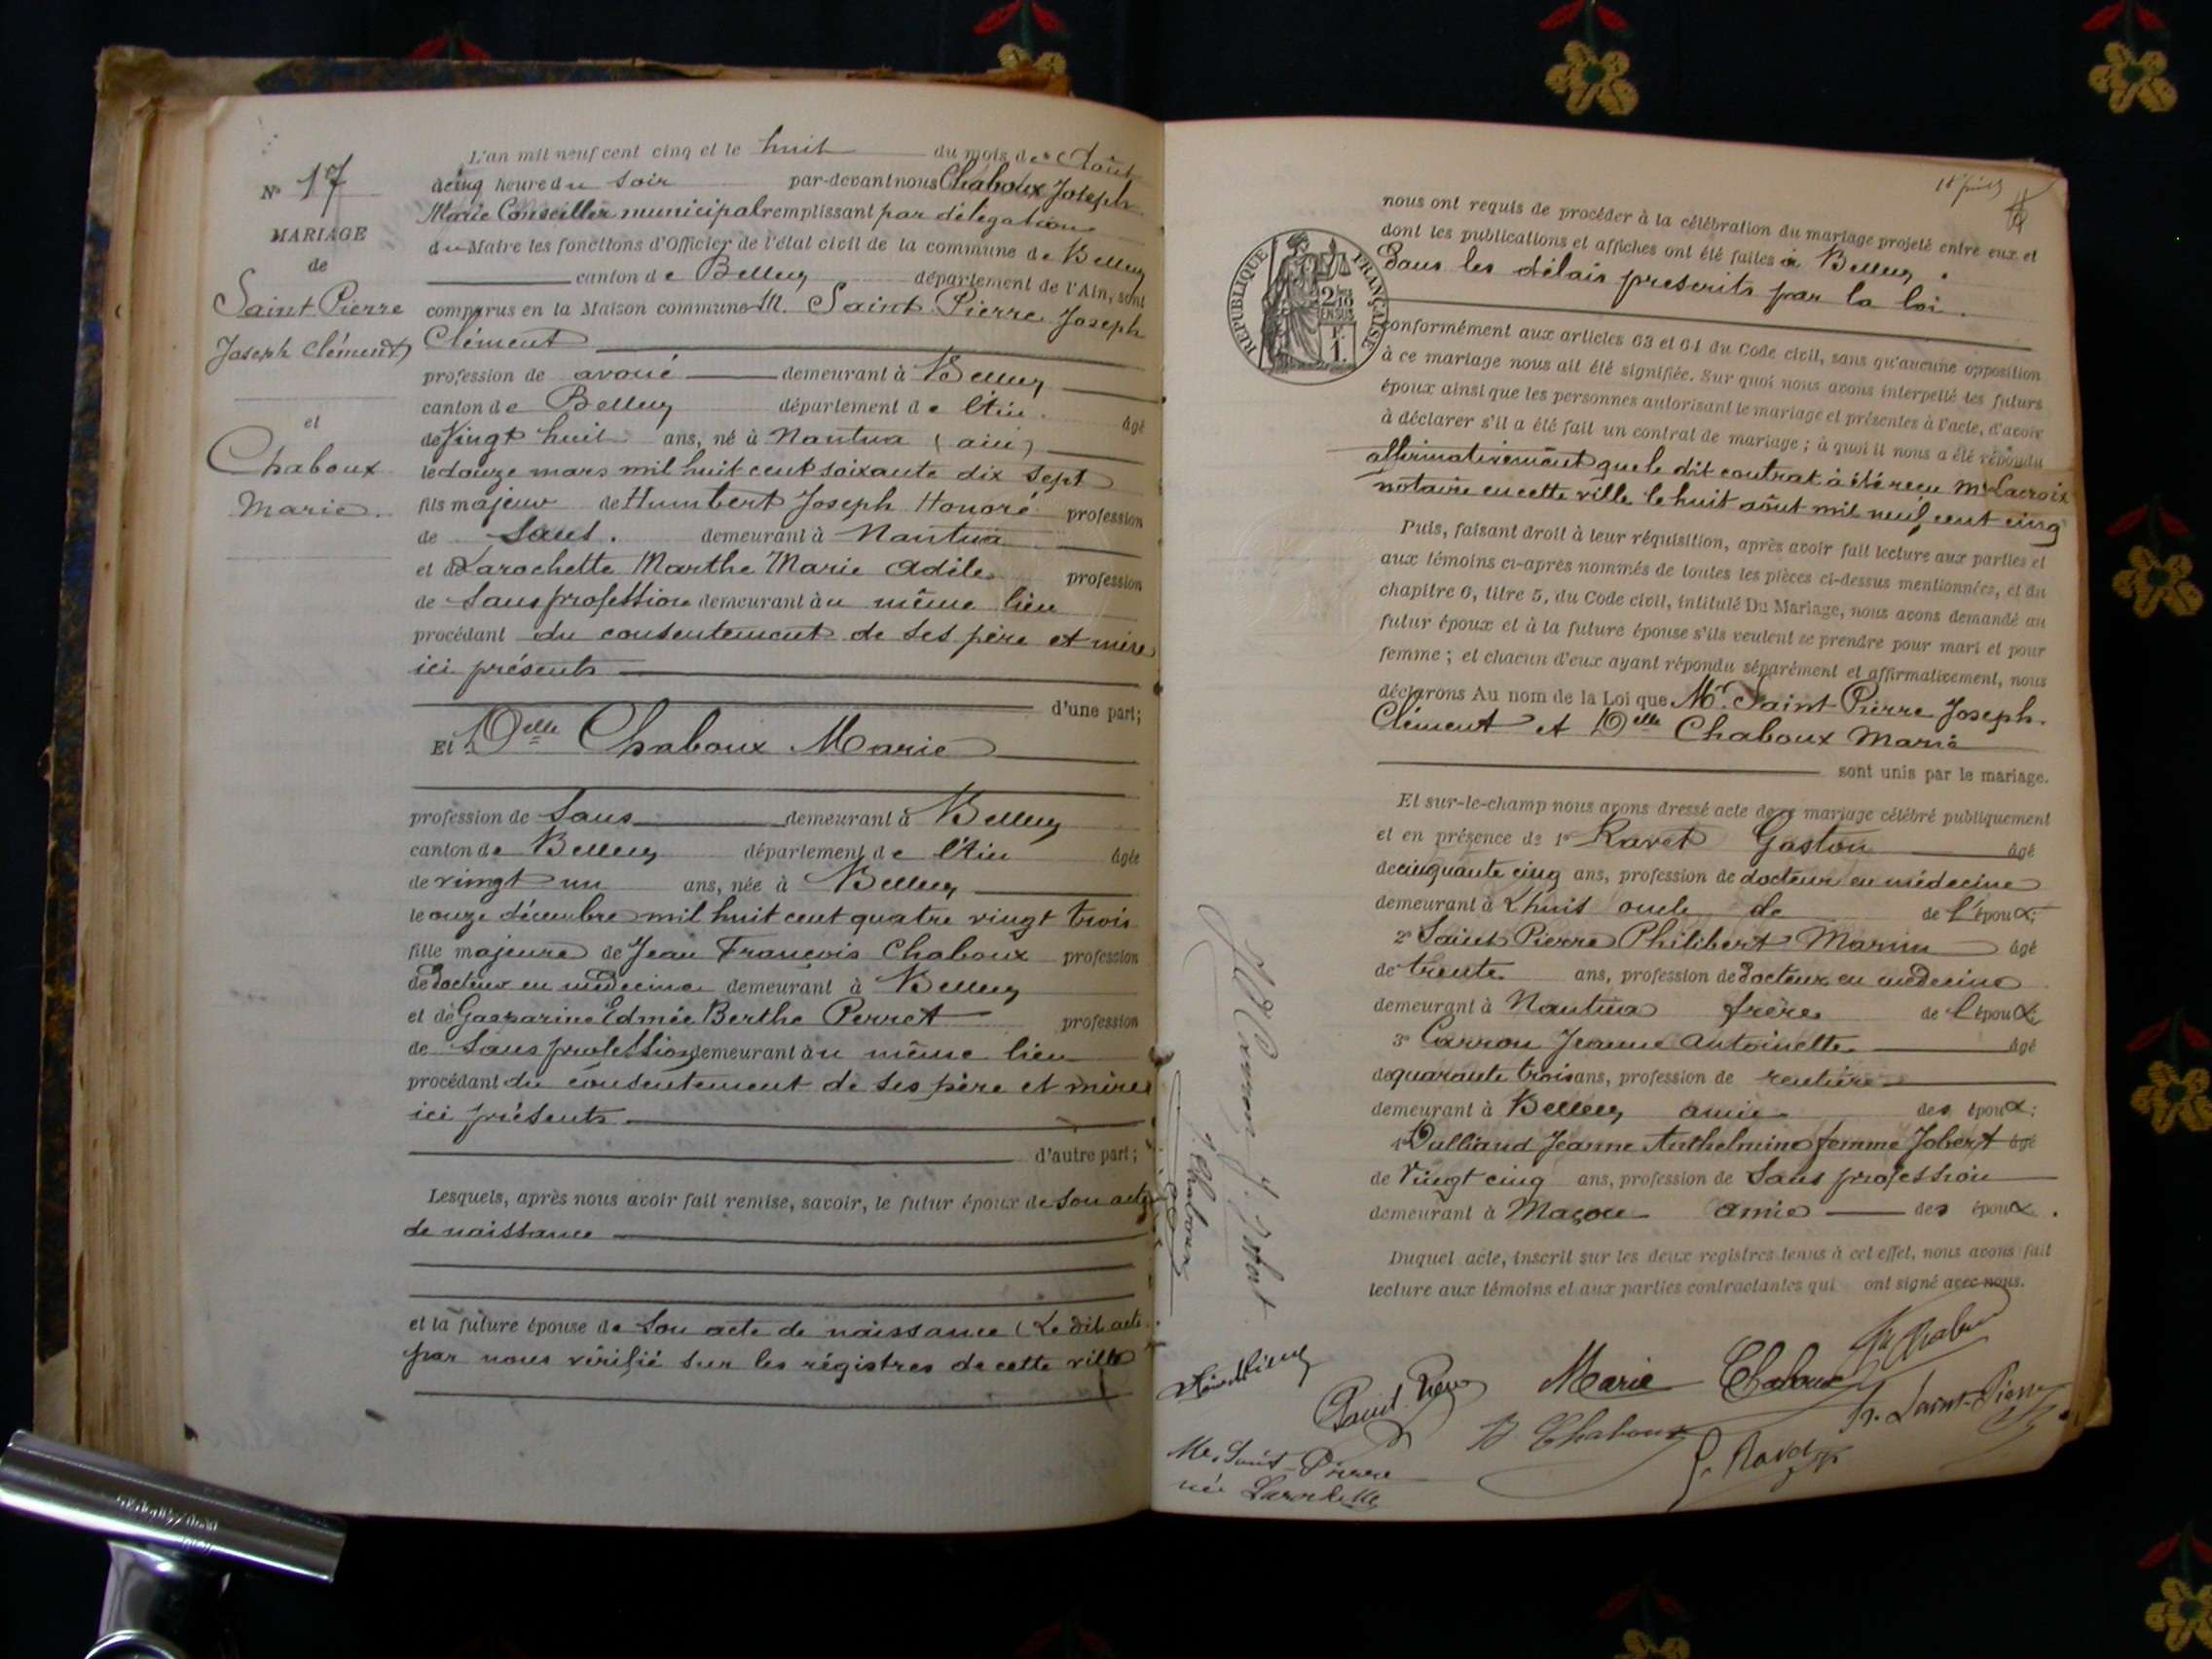 N° 17
MARIAGE
de
Saint Pierre
Joseph Clément
et
Chaboux
Marie.
L'an mil neuf cent cinq et le huit du mois de Août
à cinq heure du soir par-devant nous Chaboux Joseph
Marie Conseiller municipal remplissant par délégation
du Maire les fonctions d'Officier de l'état civil de la commune de Belley
canton de Belley département de l'Ain, sont
comparus en la Maison commune M. Saint Pierre Joseph
Clément
profession de avoué demeurant à Belley
canton de Belley département de l'Ain. âgé
de Vingt huit ans, né à Nantua (ain)
le douze mars mil huit cent soixante dix sept
fils majeur de Humbert Joseph Honoré profession
de Sans. demeurant à Nantua
et de Larochette Marthe Marie Adèle profession
de Sans profession demeurant au même lieu
procédant du consentement de ses père et mère
ici présents
d'une part;
Et Delle Chaboux Marie
profession de Sans demeurant à Belley
canton de Belley département de l'Ain âgée
de vingt un ans, née à Belley
le onze décembre mil huit cent quatre vingt trois
fille majeure de Jean François Chaboux profession
de docteur en médecine demeurant à Belley
et de Gasparine Edmée Berthe Perret profession
de Sans profession demeurant au même lieu
procédant du consentement de ses père et mère
ici présents
d'autre part;
Lesquels, après nous avoir fait remise, savoir, le futur époux de son acte
de naissance
et la future épouse de son acte de naissance (Le dit acte
par nous vérifié sur les régistres de cette ville
nous ont requis de procéder à la célébration du mariage projeté entre eux et
dont les publications et affiches ont été faites à Belley
dans les délais prescrits par la loi.
RÉPUBLIQUE FRANÇAISE
2/10
EN SUS
F.
1.
conformément aux articles 63 et 64 du Code civil, sans qu'aucune opposition
à ce mariage nous ait été signifiée. Sur quoi nous avons interpellé les futurs
époux ainsi que les personnes autorisant le mariage et présentes à l'acte, d'avoir
à déclarer s'il a été fait un contrat de mariage ; à quoi il nous a été répondu
affirmativement que le dit contrat à été reçu Me Lacroix
notaire en cette ville le huit août mil neuf cent cinq
Puis, faisant droit à leur réquisition, après avoir fait lecture aux parties et
aux témoins ci-après nommés de toutes les pièces ci-dessus mentionnées, et du
chapitre 6, titre 5, du Code civil, intitulé Du Mariage, nous avons demandé au
futur époux et à la future épouse s'ils veulent se prendre pour mari et pour
femme ; et chacun d'eux ayant répondu séparément et affirmativement, nous
déclarons Au nom de la Loi que Mr. Saint Pierre Joseph
Clément et Delle Chaboux Marie
sont unis par le mariage.
Et sur-le-champ nous avons dressé acte de ce mariage célébré publiquement
et en présence de 1° Ravet Gaston âgé
de cinquante cinq ans, profession de docteur en médecine
demeurant à Lhuis oncle de de l'époux;
2° Saint Pierre Philibert Marin âgé
de trente ans, profession de Docteur en médecine
demeurant à Nantua frère de l'époux;
3° Carron Jeanne Antoinette âgé
de quarante trois ans, profession de rentière
demeurant à Belley amie des époux;
4° Dulliand Jeanne Anthelmine femme Jobert âgé
de Vingt cinq ans, profession de Sans profession
demeurant à Maçon amie des époux.
Duquel acte, inscrit sur les deux registres tenus à cet effet, nous avons fait
lecture aux témoins et aux parties contractantes qui ont signé avec nous.
J. Jobert
J. Chaboux
Marie Chaboux
B Chaboux
h. Saint-Pierre
G. Ravet
Me. Saint-Pierre
née Larochette